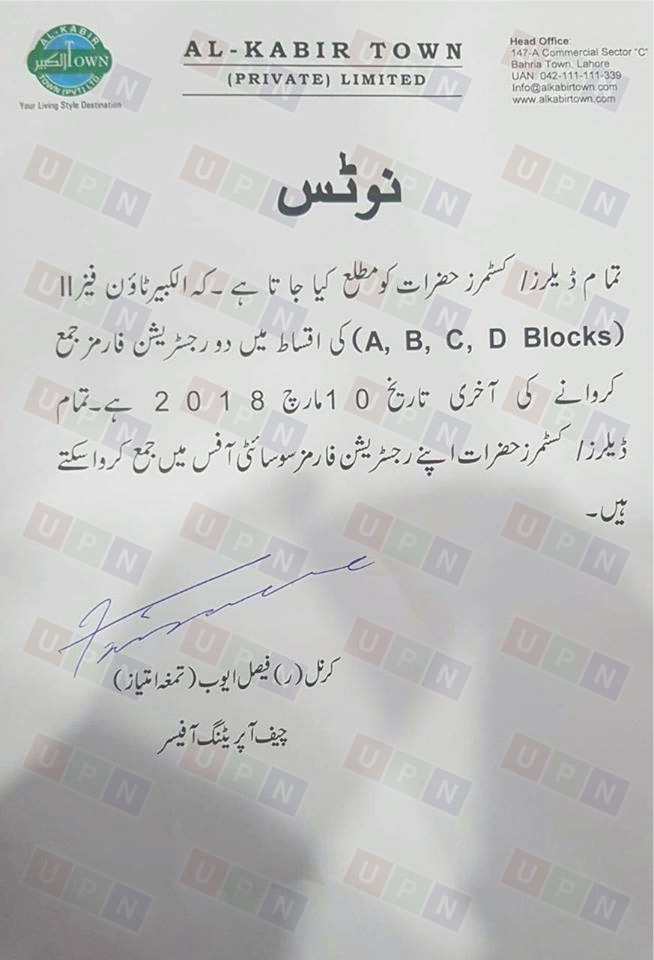 AL-KABIR
الکبیر TOWN
TOWN (PVT) LTD
Your Living Style Destination
AL-KABIR TOWN
(PRIVATE) LIMITED
Head Office:
147-A Commercial Sector "C"
Bahria Town, Lahore
UAN: 042-111-111-339
Info@alkabirtown.com
www.alkabirtown.com
نوٹس
تمام ڈیلرز/ کسٹمرز حضرات کو مطلع کیا جا تا ہے ۔ کہ الکبیر ٹاؤن فیز II
(A, B, C, D Blocks) کی اقساط میں دو رجسٹریشن فارمز جمع
کروانے کی آخری تاریخ 10 مارچ 2018 ہے۔ تمام
ڈیلرز/ کسٹمرز حضرات اپنے رجسٹریشن فارمز سوسائٹی آفس میں جمع کروا سکتے
ہیں۔
کرنل (ر) فیصل ایوب (تمغہ امتیاز)
چیف آپریٹنگ آفیسر
UPN